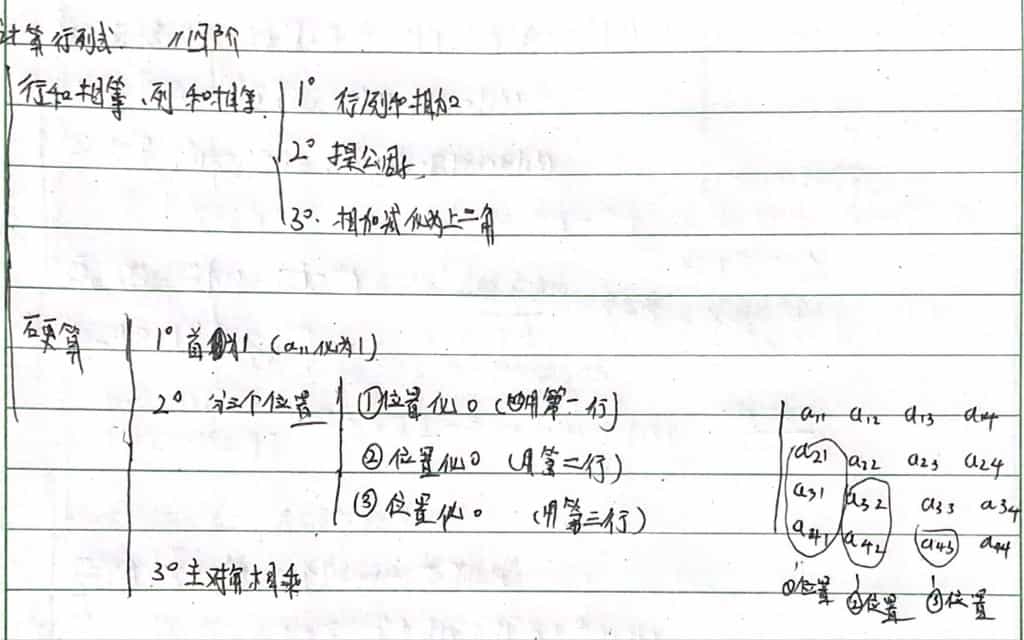 计算行列式 //四阶
行和相等、列和相等 1° 行列和相加
2° 提公因子
3°. 相加减化为上三角
硬算 1° 首列为1 (a11化为1)
2° 分三个位置 ①位置化0 (用第一行)
②位置化0 (用第二行)
③位置化0 (用第三行)
3° 主对角相乘
a11 a12 a13 a14
a21 a22 a23 a24
a31 a32 a33 a34
a41 a42 a43 a44
①位置 ②位置 ③位置